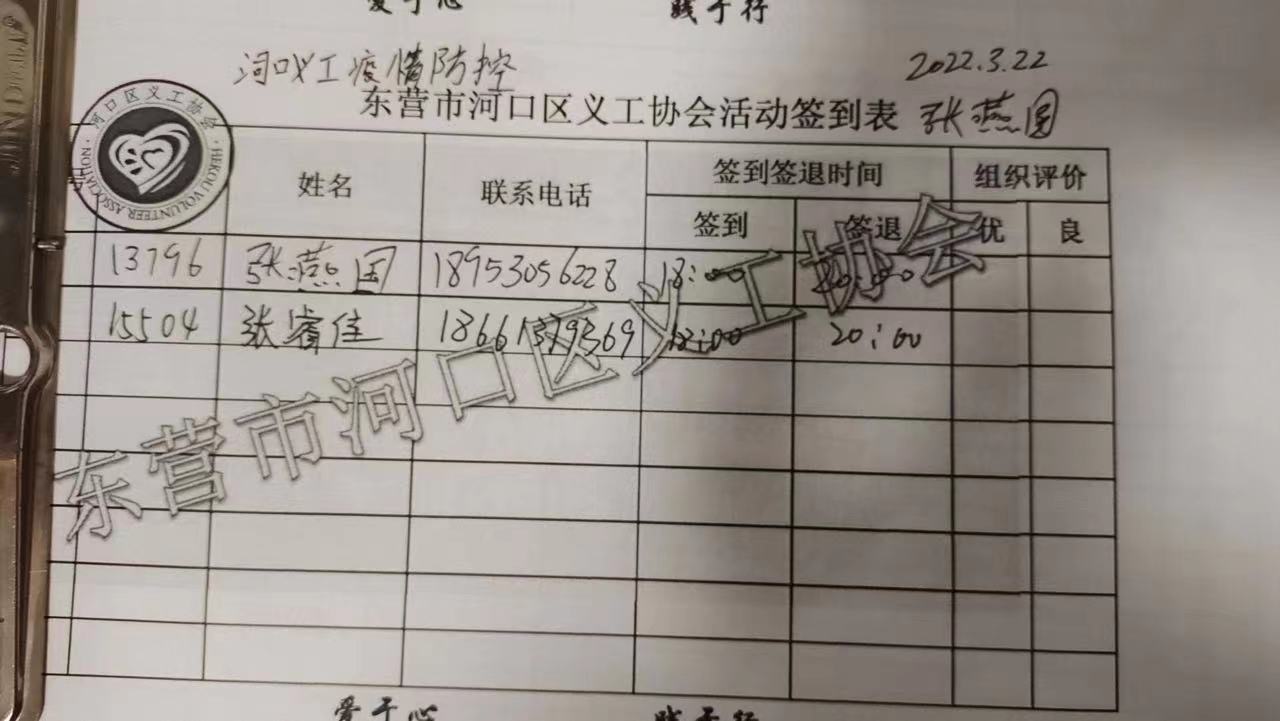 爱于心 践于行
河口义工疫情防控 2022.3.22
东营市河口区义工协会活动签到表 张燕国
河口区义工协会
HEKOU VOLUNTEER ASSOCIATION
号 姓名 联系电话 签到签退时间 组织评价
签到 签退 优 良
13796 张燕国 18953056228 18:00 20:00
15504 张睿佳 18661379369 18:00 20:00
东营市河口区义工协会
爱于心 践于行